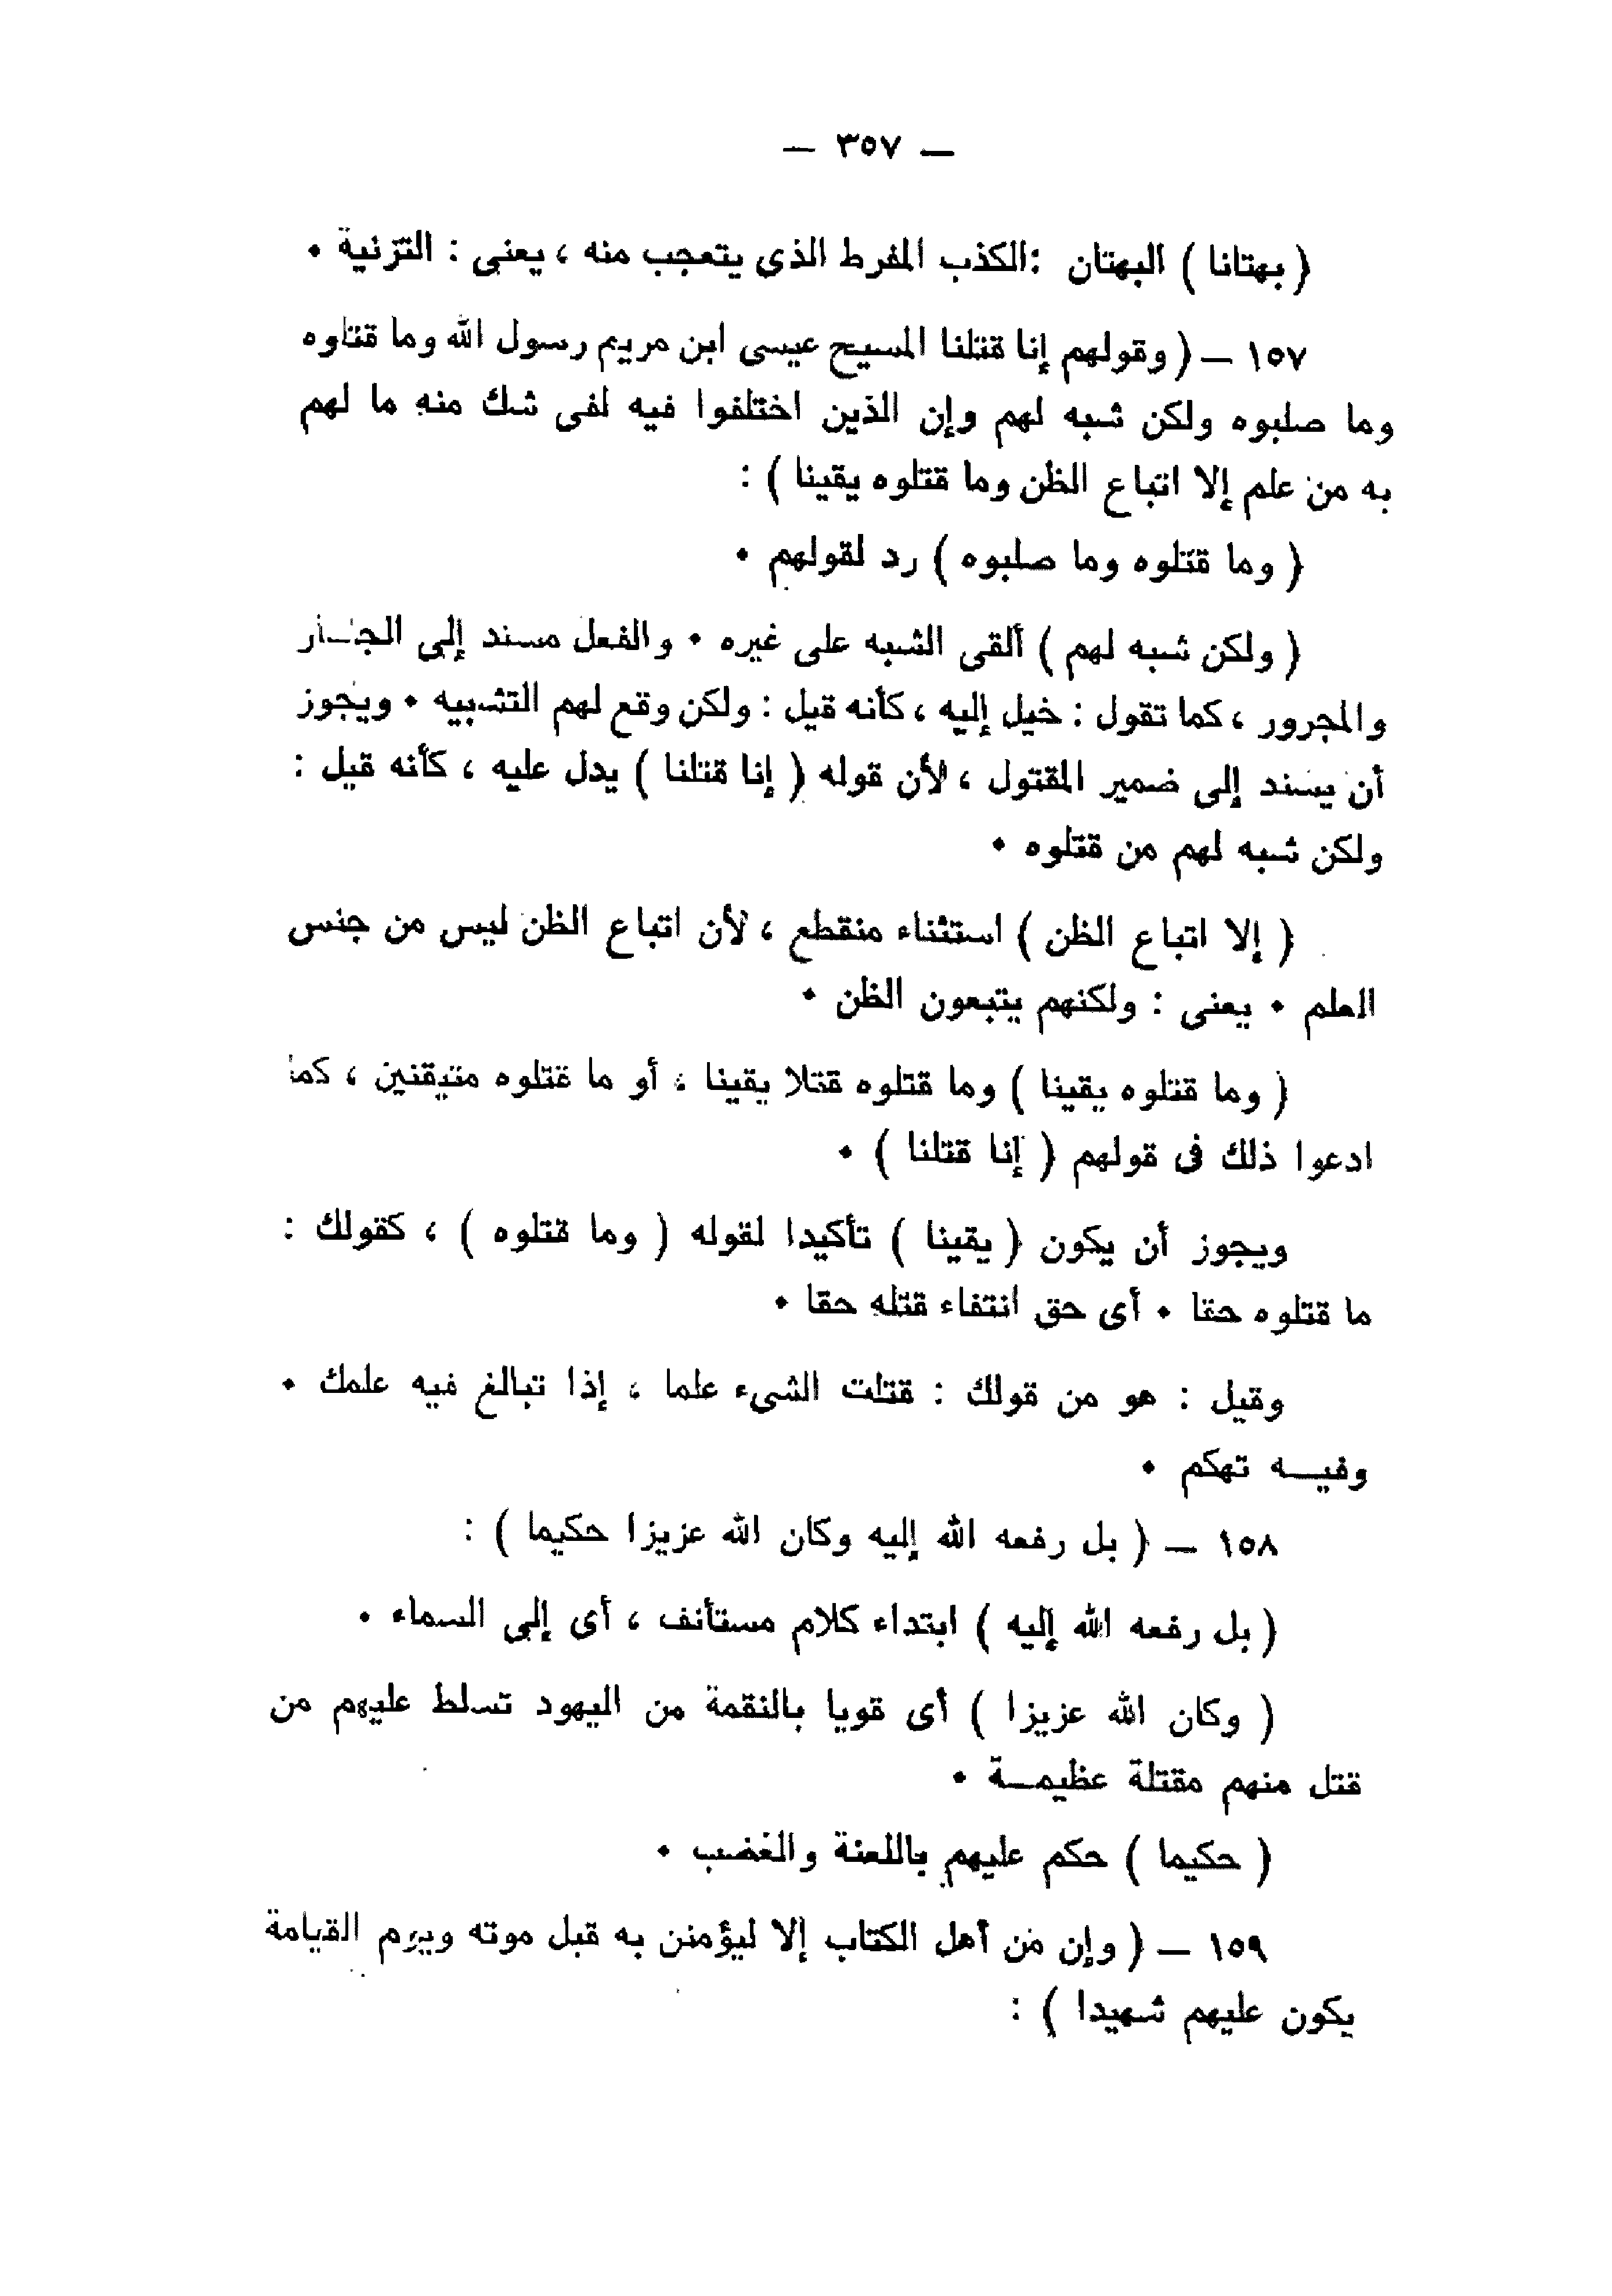 — ٣٥٧ —
( بهتانا ) البهتان :الكذب المفرط الذى يتعجب منه ، يعنى : التزنية ٠
١٥٧ — ( وقولهم إنا قتلنا المسيح عيسى ابن مريم رسول الله وما قتلوه
وما صلبوه ولكن شبه لهم وإن الذين اختلفوا فيه لفى شك منه ما لهم
به من علم إلا اتباع الظن وما قتلوه يقينا ) :
( وما قتلوه وما صلبوه ) رد لقولهم ٠
( ولكن شبه لهم ) ألقى الشبه على غيره ٠ والفعل مسند إلى الجـار
والمجرور ، كما تقول : خيل إليه ، كأنه قيل : ولكن وقع لهم التشبيه ٠ ويجوز
أن يسند إلى ضمير المقتول ، لأن قوله ( إنا قتلنا ) يدل عليه ، كأنه قيل :
ولكن شبه لهم من قتلوه ٠
( إلا اتباع الظن ) استثناء منقطع ، لأن اتباع الظن ليس من جنس
العلم ٠ يعنى : ولكنهم يتبعون الظن ٠
( وما قتلوه يقينا ) وما قتلوه قتلا يقينا ، أو ما قتلوه متيقنين ، كما
ادعوا ذلك فى قولهم ( إنا قتلنا ) ٠
ويجوز أن يكون ( يقينا ) تأكيدا لقوله ( وما قتلوه ) ، كقولك :
ما قتلوه حقا ٠ أى حق انتفاء قتله حقا ٠
وقيل : هو من قولك : قتلت الشىء علما ، إذا تبالغ فيه علمك ٠
وفيـــه تهكم ٠
١٥٨ — ( بل رفعه الله إليه وكان الله عزيزا حكيما ) :
( بل رفعه الله إليه ) ابتداء كلام مستأنف ، أى إلى السماء ٠
( وكان الله عزيزا ) أى قويا بالنقمة من اليهود تسلط عليهم من
قتل منهم مقتلة عظيمـــة ٠
( حكيما ) حكم عليهم باللعنة والغضب ٠
١٥٩ — ( وإن من أهل الكتاب إلا ليؤمنن به قبل موته ويوم القيامة
يكون عليهم شهيدا ) :